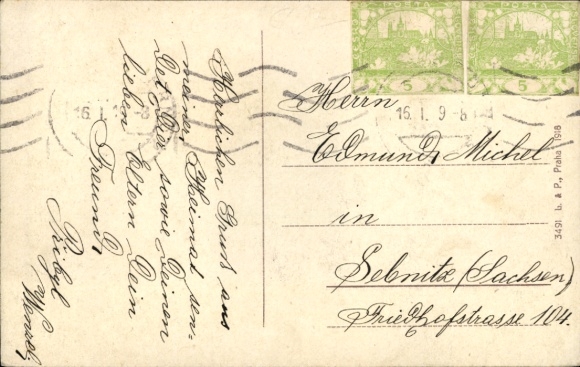 Herzlichen Gruß aus
meiner Heimat sen-
Det Dir sowie Deinen
lieben Eltern Dein
Freund,
Wenzel,
POŠTA
5
POŠTA
5
16. I. 9-8
16. I. 9-8
Herrn
Edmund, Michel
in
Sebnitz (Sachsen)
Friedhofstrasse 104.
3491 L. & P., Praha 1918